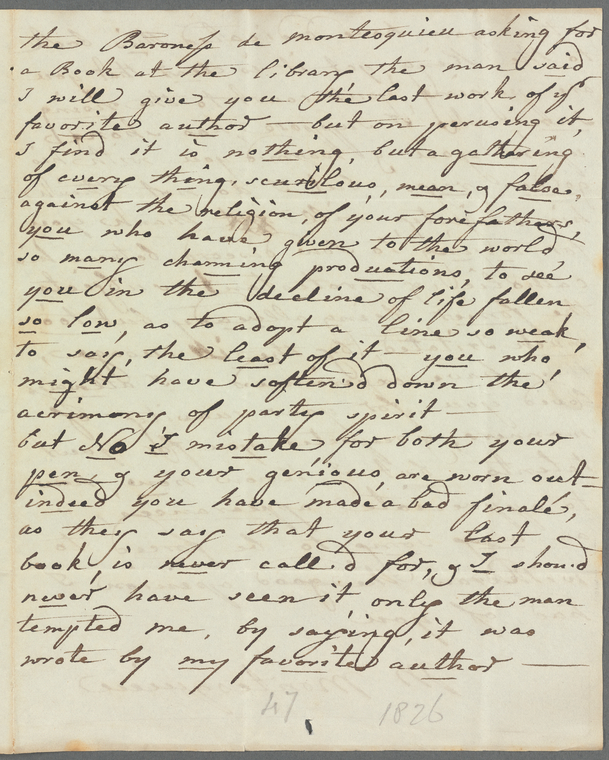 the Baroness de Montesquieu asking for
a Book at the library the man said
I will give you the last work of yr
favorite author — but on perusing it,
I find it is nothing, but a gathering
of every thing, scurilous, mean, & false,
against the religion, of your forefathers,
you who have given to the world
so many charming productions, to see
you in the decline of life fallen
so low, as to adopt a line so weak,
to say, the least of it — you who,
might have soften'd down the
acrimony of party spirit —
but No I mistake, for both your
pen, & your genious, are worn out —
indeed you have made a bad finalé,
as they say that your last
book, is never call'd for, & I shou'd
never have seen it, only the man
tempted me, by saying, it was
wrote by my favorite author —
47 1826